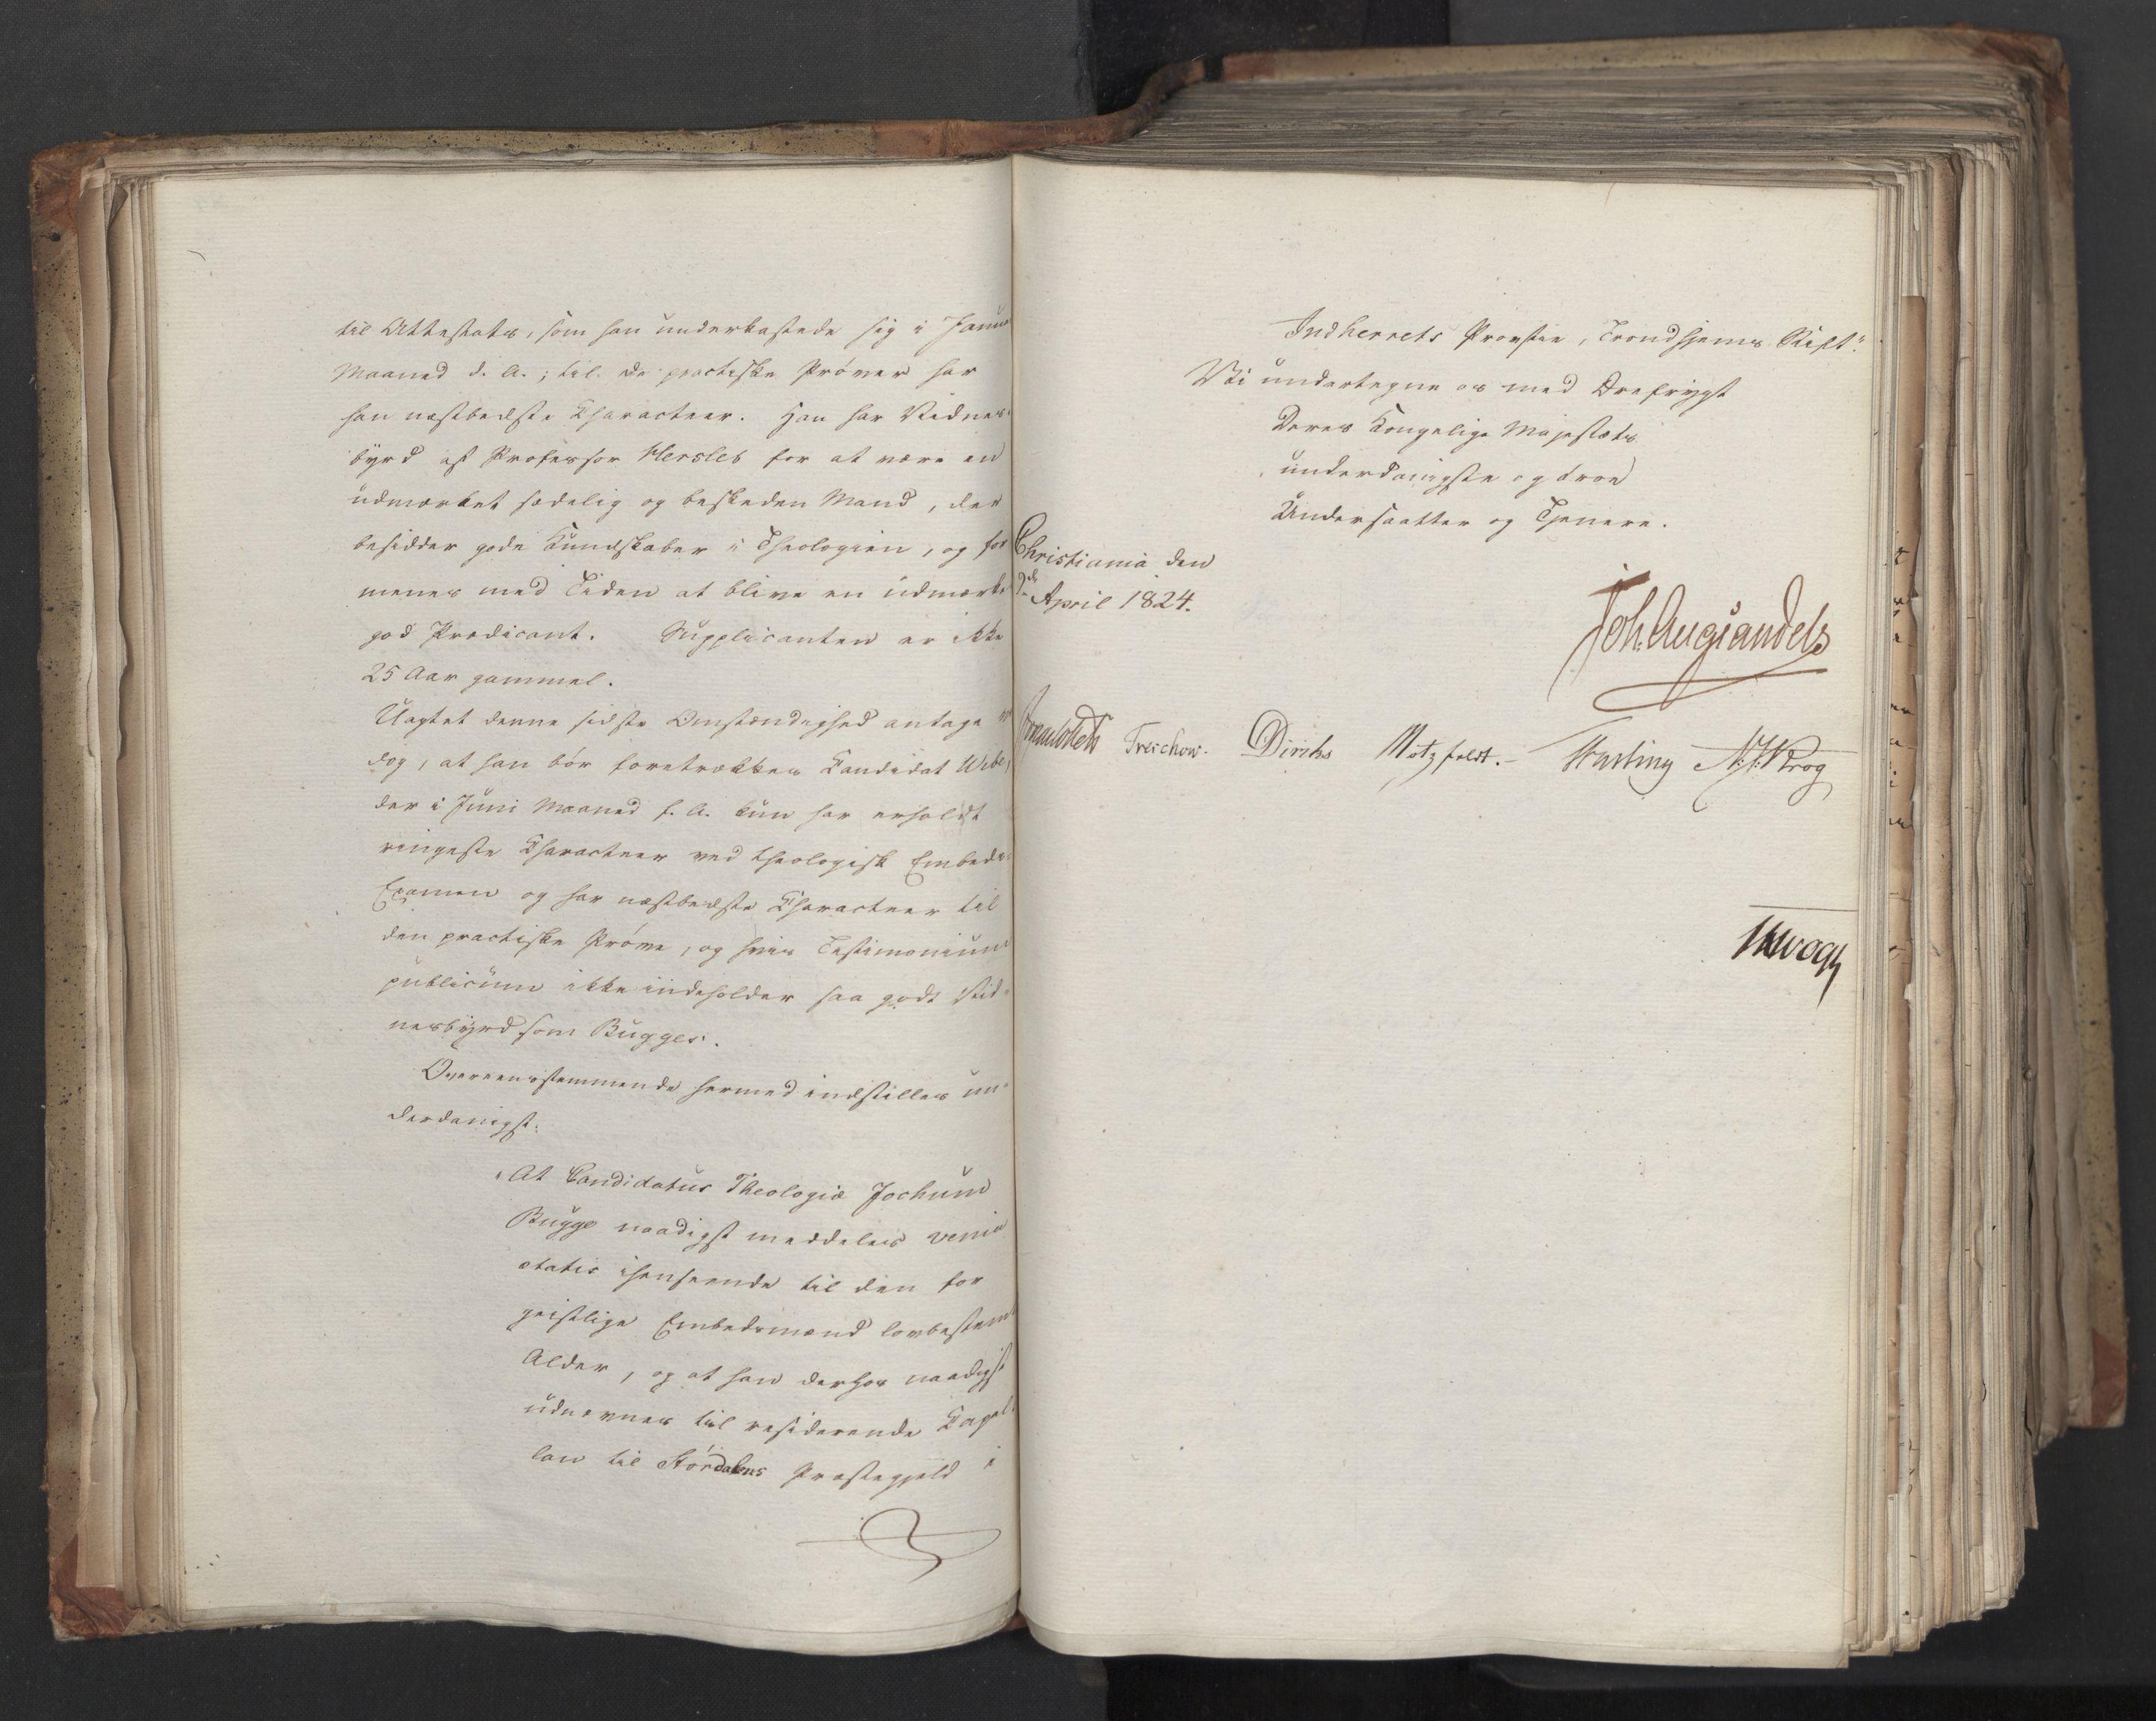 til Attestats, som han underkastede sig i Janu
Maaned d. A.; til de practiske Prøver har
han næstbedste Characteer. Han har Vidnes-
byrd af Professor Hersleb for at være en
udmærket sædelig og beskeden Mand, der
besidder gode Kundskaber i Theologien, og for
menes med Tiden at blive en udmærke
god Prædicant. Supplicanten er ikke
25 Aar gammel.
Uagtet denne sidste Omstændighed antage
dog, at han bør foretrækkes Candidat Wibe,
der i Juni Maaned f. A. kun har erholdt
ringeste Characteer ved theologisk Embeds-
Examen og har næstbedste Characteer til
den practiske Prøve, og hvis Testimonium
publicum ikke indeholder saa godt Vid-
nesbyrd som Bugges.
Overeensstemmende hermed indstilles un-
derdanigst:
"At Candidatus Theologiæ Jochum
Bugge naadigst meddeles venia
ætatis ihenseende til den for
geistlige Embedsmænd lovbestem
Alder, og at han derhos naadigst
udnævnes til residerende Capel-
lan til Størdalens Præstegjeld i
Indherrets Provstie, Trondhjems Stift".
Vi undertegne os med Ærefrygt
Deres Kongelige Majestæts
underdanigste og troe
Undersaatter og Tjenere.
Christiania den
9de April 1824.
Joh. Aug. Sandels
Sommerhielm Treschow. Diriks Motzfeldt. Fasting N. J. Krog
JHVogt